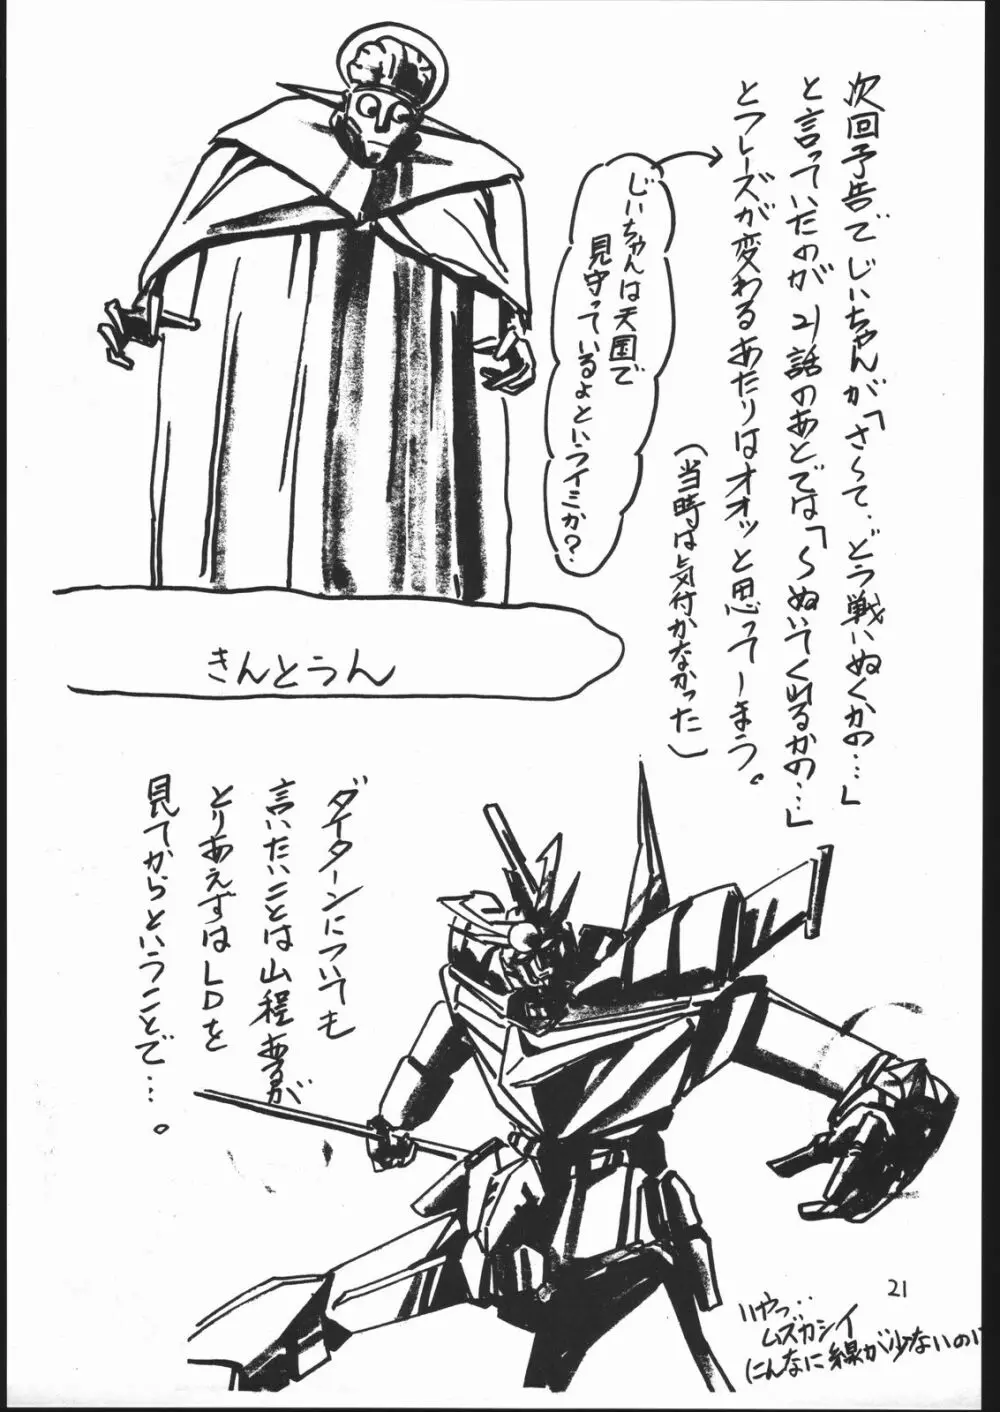 次回予告でじいちゃんが「さ～て、どう戦いぬくかの…」
と言っていたのが21話のあとでは「～ぬいてくれるかの…」
とフレーズが変わるあたりはオオッと思ってしまう。
(当時は気付かなかった)
じいちゃんは天国で
見守っているよというイミか?
きんとうん
ダイターンについても
言いたいことは山程あるが
とりあえずはLDを
見てからということで…。
21
いやっ‥
ムズカシイ
こんなに線が少ないのに